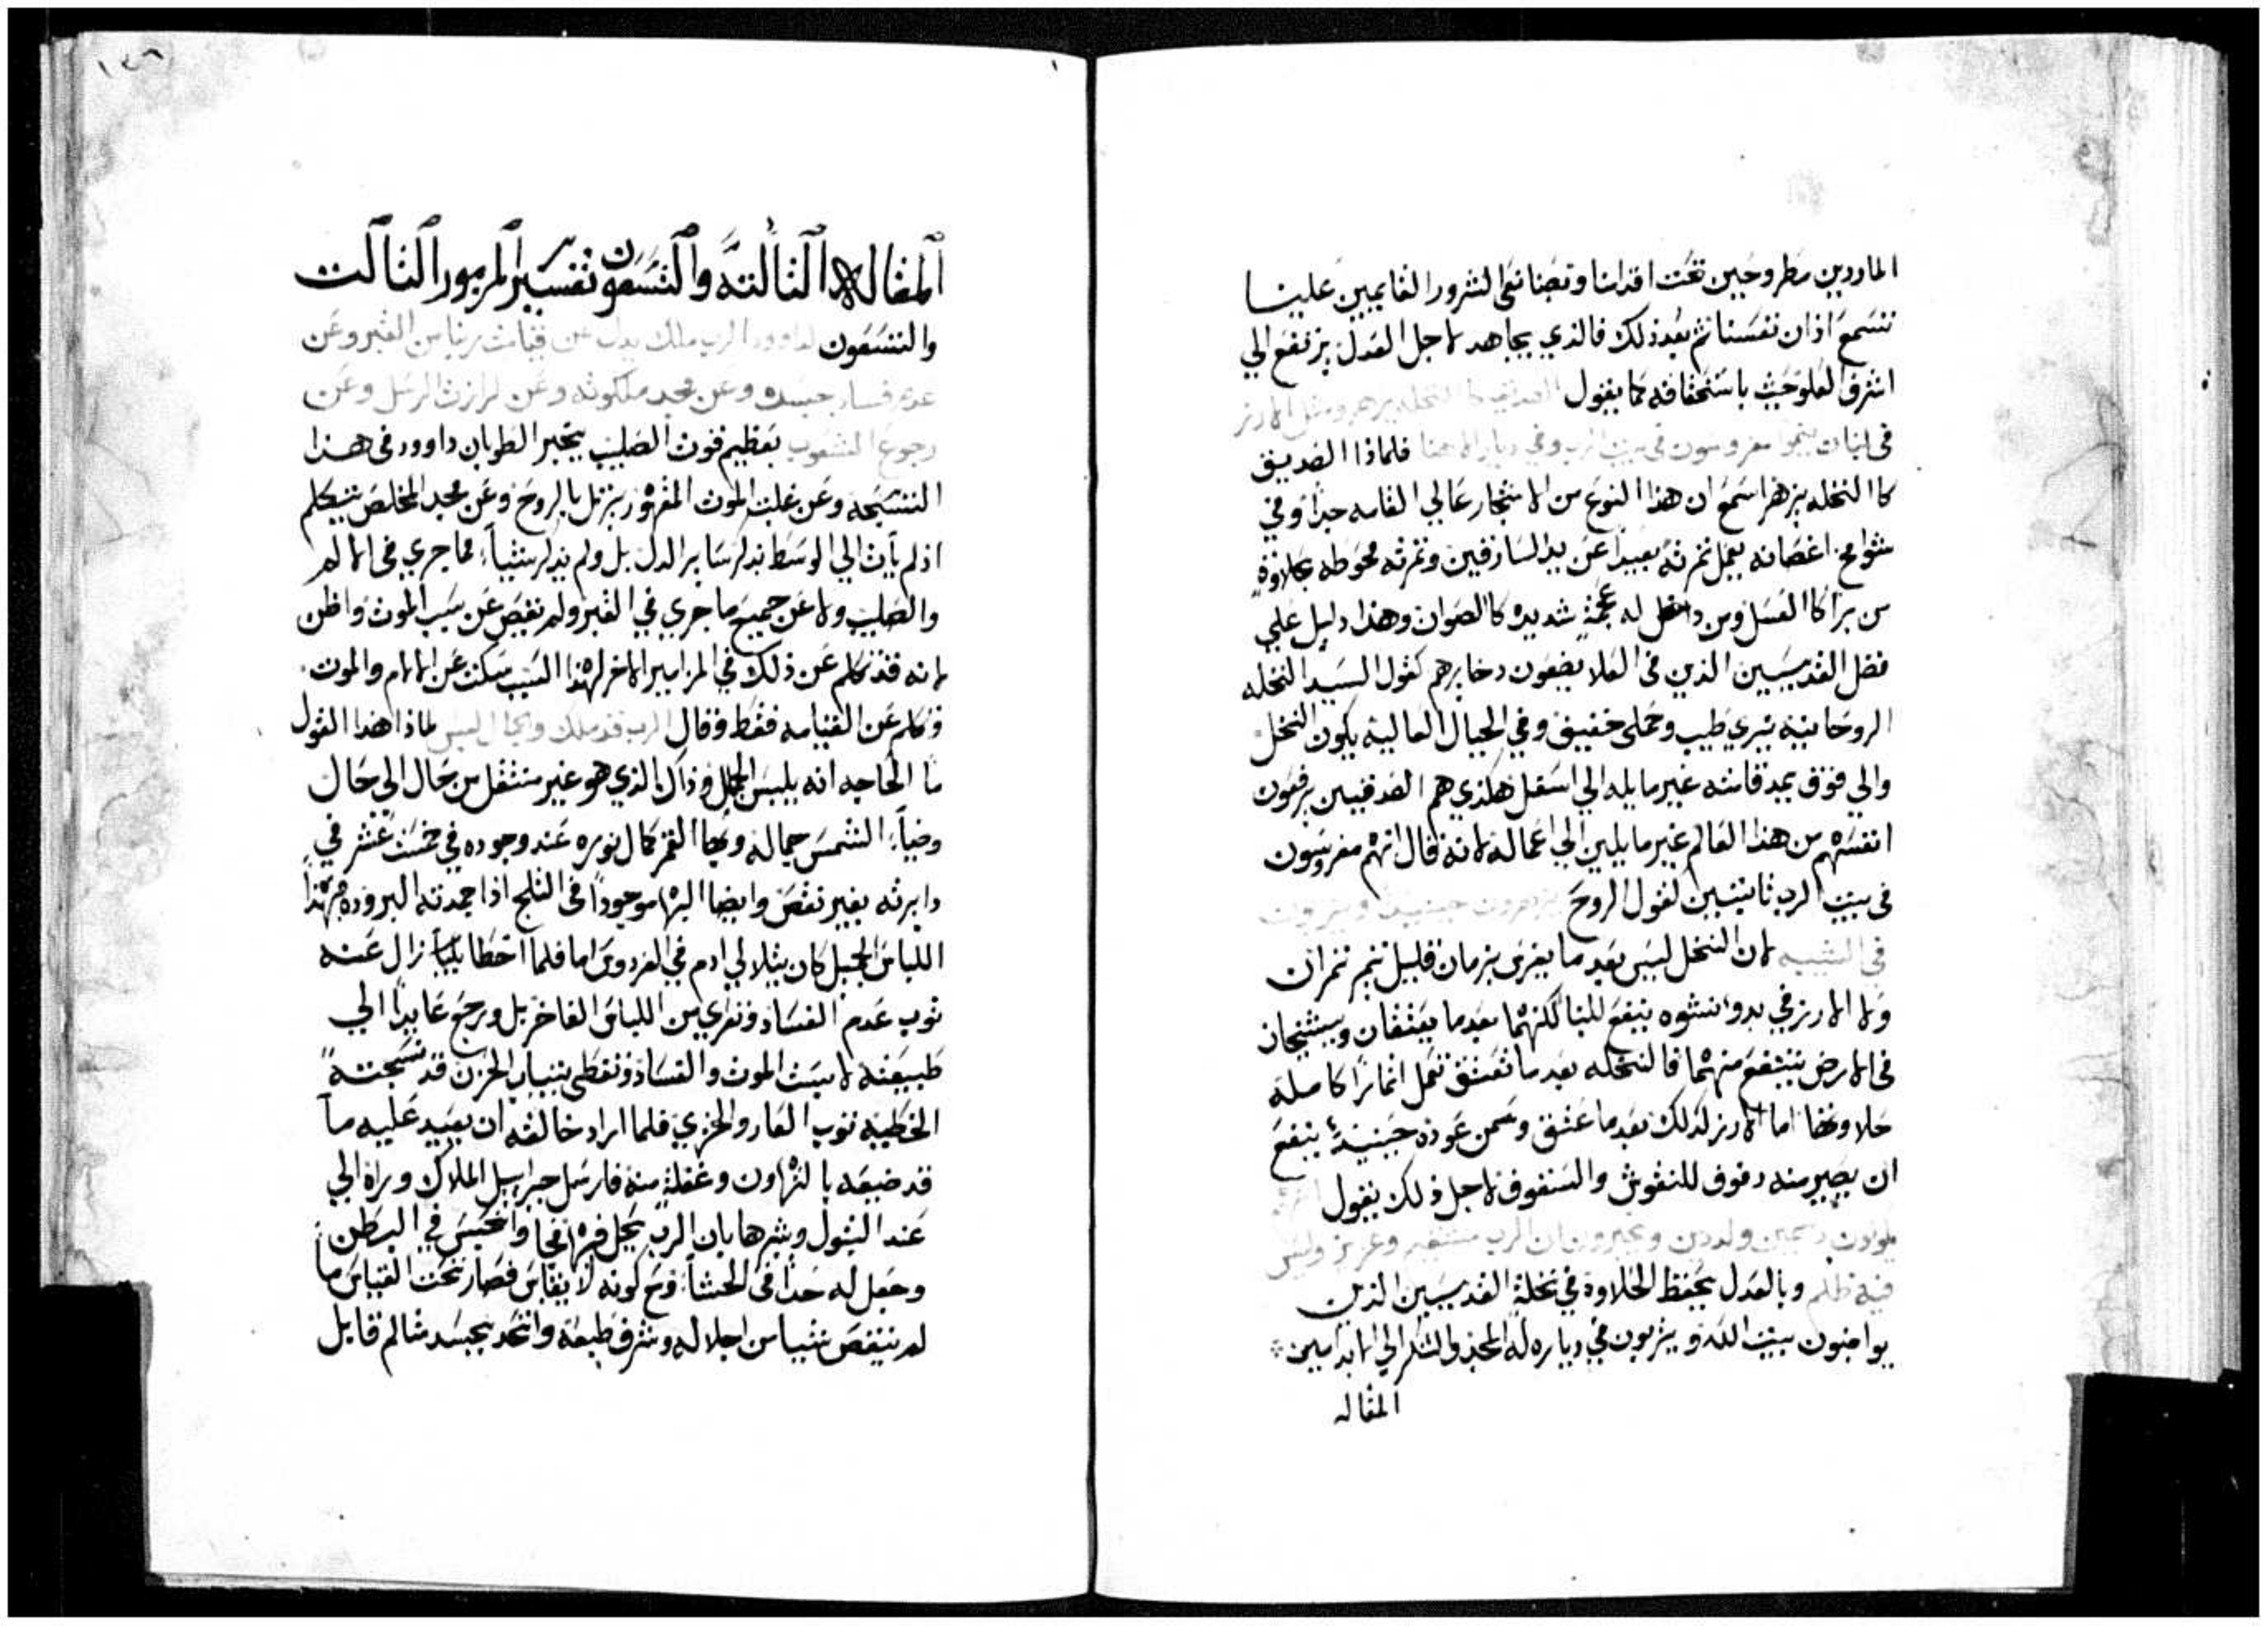 الماردين مطروحين تحت اقدامنا وتصنا نعي الشرور القايمين علينا
تسمع اذان نفسنا ثم بعد ذلك فالذي يجاهد لاجل العدل يرتفع الي
اشرف العلو حيث باستحقاقه كما يقول الصديق كالنخله يزهر ومثل الارز
في لبنان ينموا مغروسون في بيت الرب وفي ديار الاهنا فلماذا الصديق
كا النخله يزهر اسمع ان هذا النوع من الاشجار عالي القامه جدا وفي
شوامخ اغصانه يعمل ثمرته بعيدا عن يد السارقين وثمرته محوطه بحلاوة
من برا كا العسل ومن داخل له عجمة شديده كالصوان وهذا دليل علي
فضل القديسين الذين في العلا يضعون دخايرهم كقول السيد النخله
الروحانيه تبري طيب وحملى خفيف وفي الجبال العاليه يكون النخل
والي فوق يمد قامته غير مايله الي اسفل هكذي هم الصدقيين يرفعون
انفسهم من هذا العالم غير مايلين الي اعماله لانه قال انهم مغروسون
في بيت الرب ثابتين لقول الروح يزهرون حينيذ
في الشيبه لان النخل ليس بعد ما يغرس بزمان قليل تتم ثمرات
ولا الارز في بدو نشوه ينفع للبنا لكنهما بعدما يعتقان ويستنجان
في الارض ينتفع منهما فالنخله بعد ما تعتق تعمل اثمارا كامله
حلاوتها اما الارز لذلك بعدما عتق وسمن عوده حينيذ ينفع
ان يصير منه دفوف للنقوش والسقوف لاجل ذلك يقول
يكونون دسمين ولددين ويخبرون ان الرب مستقيم وعزيز وليس
فيه ظلم وبالعدل يحفظ الحلاوة في نخلة القديسين الذين
يواضبون بيت الله ويثربون في دياره له المجد والشكر الي الابد امين
المقاله
١٣٦
المقاله الثالثه والتسعون تفسير المزمور الثالث
والتسعون لداوود الرب ملك يدل عن قيامة ربنا من القبر وعن
عدم فساد جسده وعن مجد ملكوته وعن كرازة الرسل وعن
رجوع الشعوب بعظيم قوت الصليب يخبر الطوبان داوود في هذا
التسبحه وعن غلبت الموت المقهور يرتل بالروح وعن مجد المخلص يتكلم
اذ لم يات الي الوسط بذكر ساير الدل بل ولم يذكر شيا مما جري في الالم
والصليب ولا عن جميع ما جري في القبر ولم نفيص عن سبب الموت واظن
لانه قد تكلم عن ذلك في المزامير الاخر لهذا السبب سكت عن الالام والموت
وتكلم عن القيامه فقط وقال الرب قد ملك والجمال لبس لماذا هذا القول
ما الحاجه انه يلبس الجمال وذاك الذي هو غير متنقل من حال الي حال
وضياء الشمس جماله وبها القمر كمال نوره عند وجوده في خمست عشر في
دايرته بغير نقص وايضا البها موجودا في الثلج اذا جمدته البروده فبهذا
اللباس الجميل كان يتلالي ادم في الفردوس اما فلما اخطا زال عنه
ثوب عدم الفساد وتعري من اللباس الفاخر بل ورجع عايدا الي
طبيعته لابست الموت والفساد وتغطي بتياب الحزن قد نسجته
الخطيه ثوب العار والخزي فلما اراد خالقه ان يعيد عليه ما
قد ضيعه بالتهاون وغفلة منه فارسل جبراييل الملاك وراه الي
عند البتول وبشرها بان الرب يحل فيها فجا وانحبس في البطن
وجعل له حدا في الحشا ومع كونه لا يقاس فصار تحت القياس ما
لم ينتقص شيا من اجلاله وشرف طبيعه واتحد بجسد شالم قابل